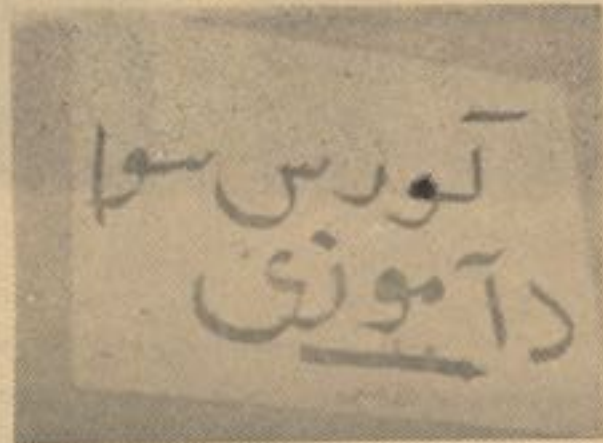 کورس سوا
دآموزی